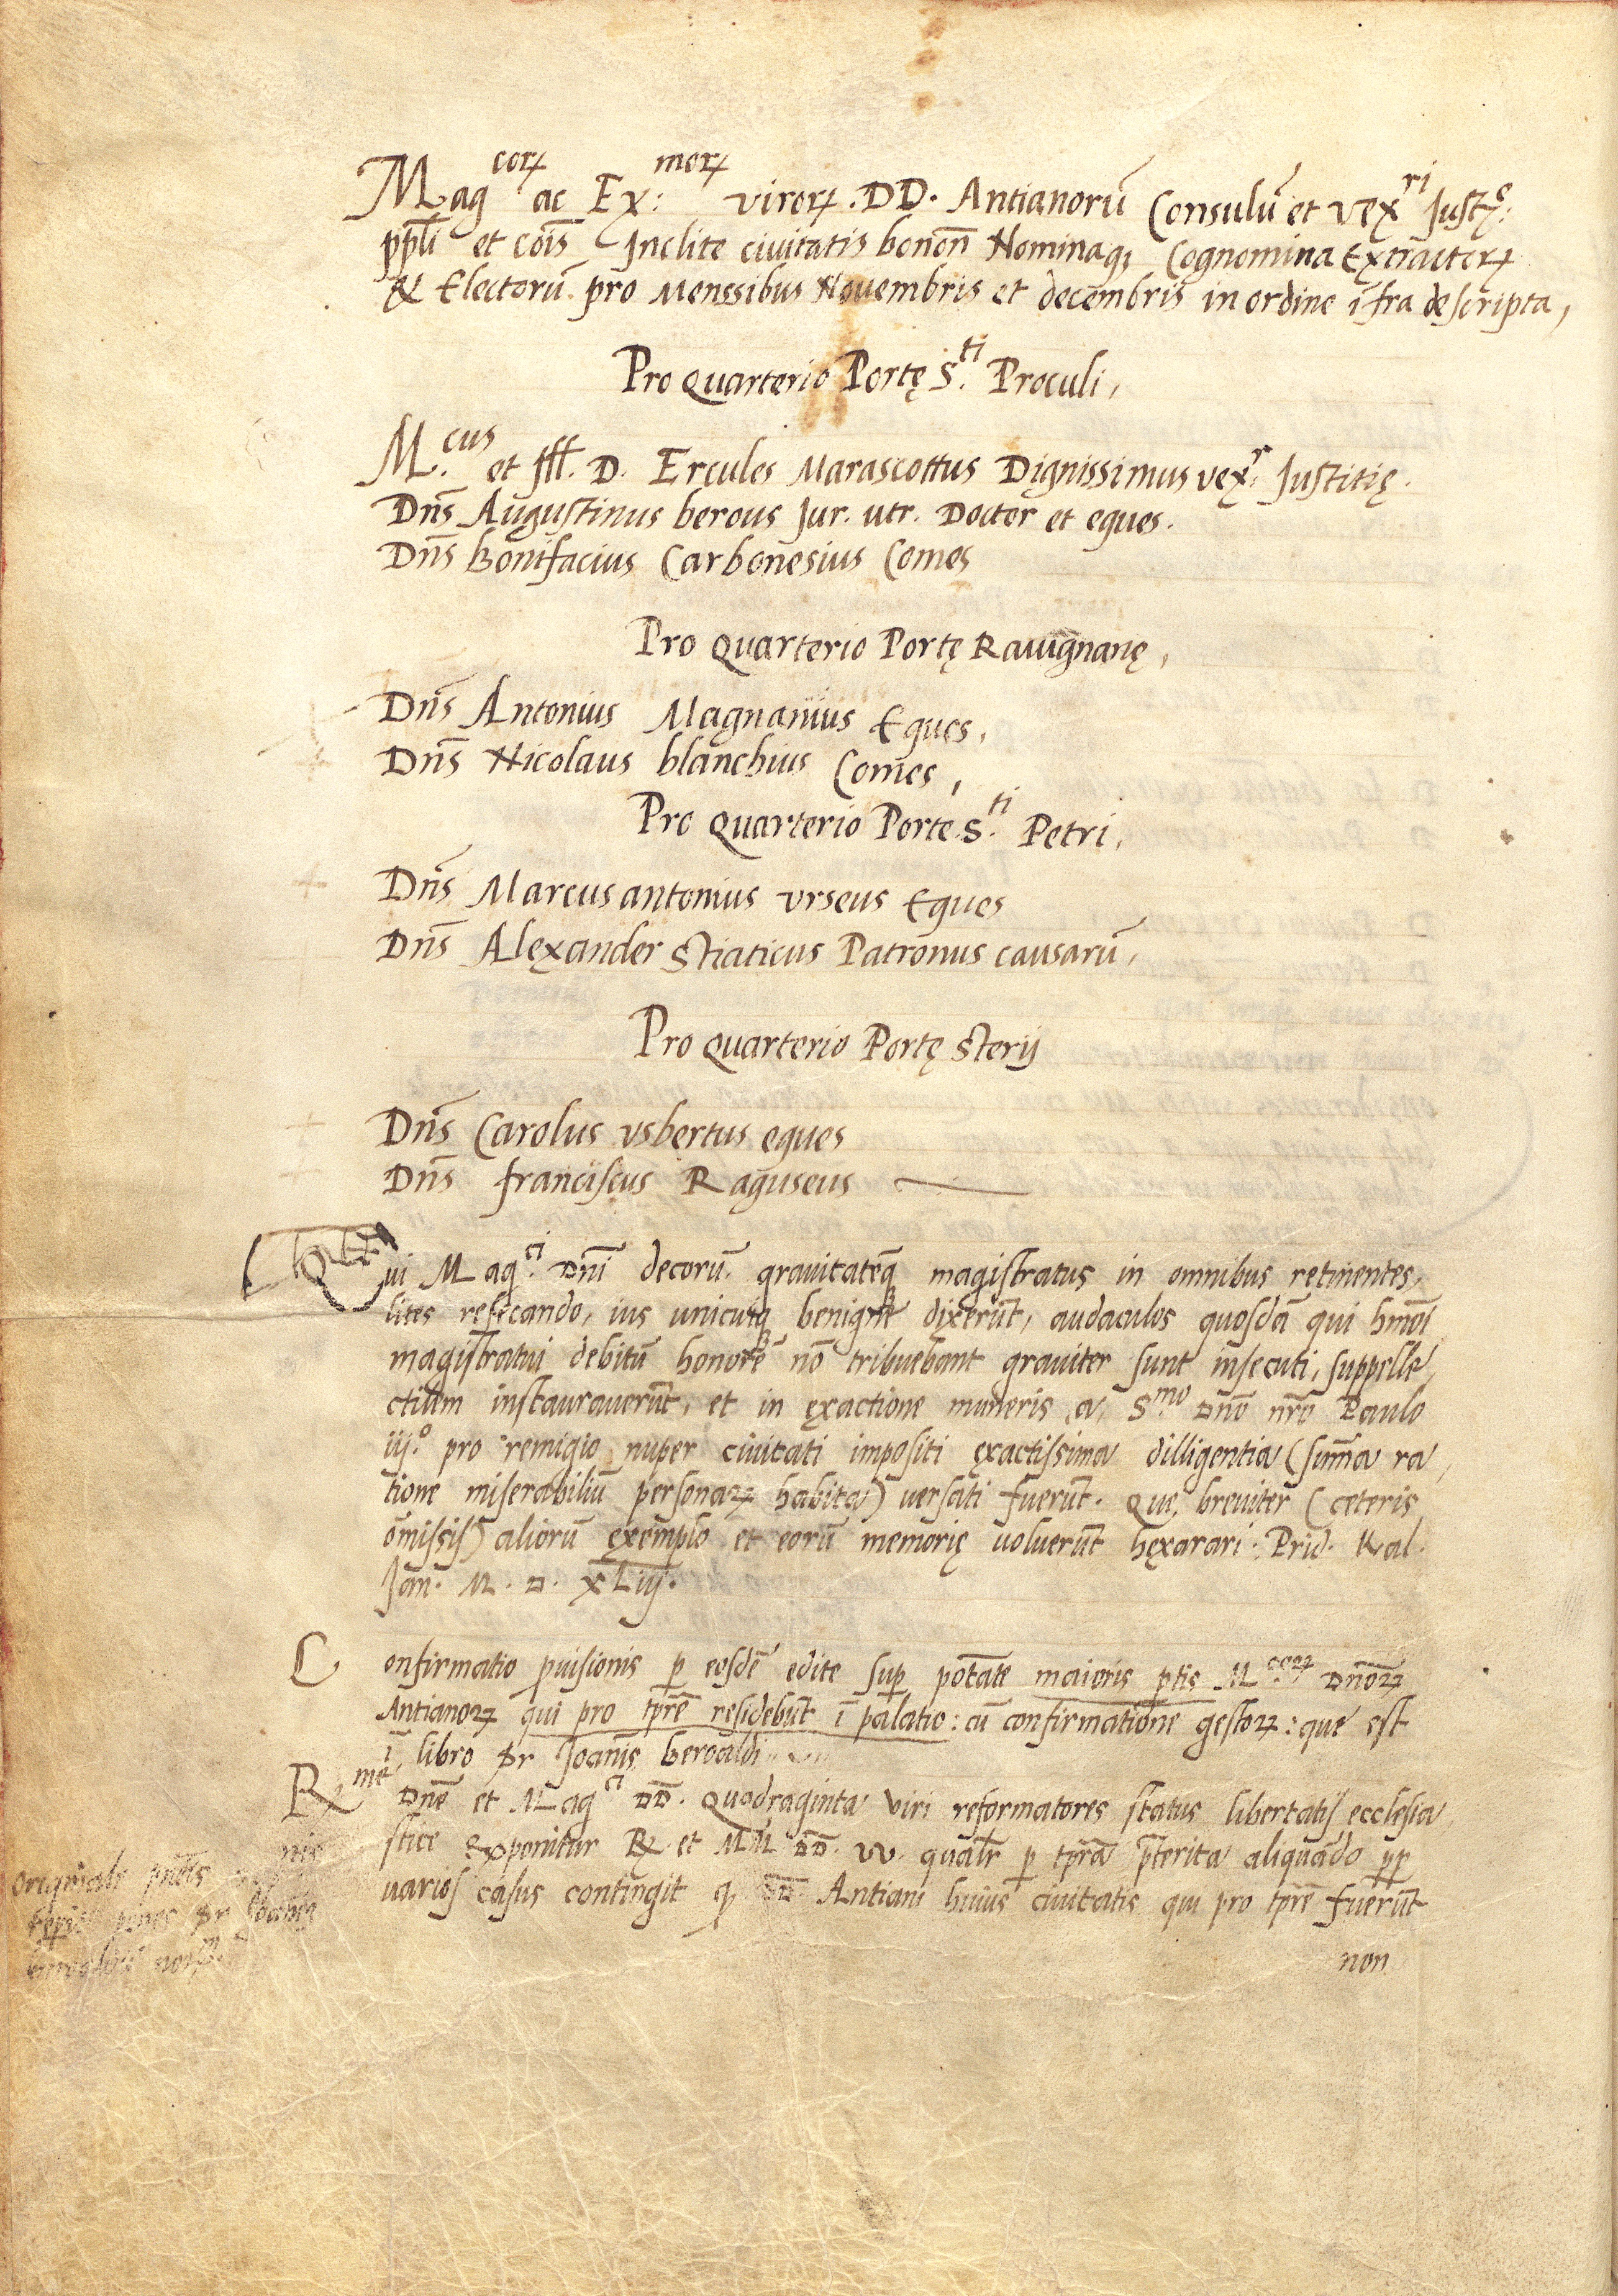 Mag^corꝝ ac Ex:^morꝝ virorꝝ. DD. Antianorū Consulū et vex^ri Justẹ:
pp̄li et cōis Inclite ciuitatis bonon̄ Nominaq; Cognomina Extractorꝝ
& Electorū pro Menssibus Nouembris et decembris in ordine īfra descripta,
Pro Quarterio Portę S.^ti Proculi,
M.^cus et Ill. D. Ercules Marascottus Dignissimus vex.^r Justitię.
Dn̄s Augustinus berous Jur. utr. Doctor et eques.
Dn̄s Bonifacius Carbonesius Comes
Pro Quarterio Portę Rauignanę,
Dn̄s Antonius Magnanius Eques,
Dn̄s Nicolaus blanchius Comes,
Pro Quarterio Porte S.^ti Petri,
Dn̄s Marcus antonius urseus Eques
Dn̄s Alexander Stiaticus Patronus causarū,
Pro Quarterio Portę Sterij
Dn̄s Carolus usbertus eques
Dn̄s franciscus Raguseus
Qui Mag.^ci Dn̄i decorū grauitateq̄ magistratus in omnibus retinentes,
lites resecando, ius unicuiq̨ benigne dixerūt, audaculos quosdā qui hmōi
magistratui debitū honorē nō tribuebant grauiter sunt insecuti, suppelle
ctilem instaurauerūt, et in exactione muneris a S.^mo Dn̄o nr̄o Paulo
iij.^o pro remigio nuper ciuitati impositi exactissima dilligentia (sum̄a ra
tione miserabiliū personaꝝ habita) versati fuerūt. Que, breuiter (ceteris
omissis) aliorū exemplo et eorū memorię uoluerūt hexarari. Prid. Kal.
Jan. M. D. XLiij.
Confirmatio ꝓuisionis ꝑ eosdē edite suꝑ potāte maioris ꝑtis M.^coꝝ Dn̄oꝝ
Antianoꝝ qui pro tpr̄e residebūt ī palatio: cū confirmatione gestoꝝ: que est
ī libro Sr Joanis Beroaldi
R^me Dn̄e et Mag^ci DD. Quadraginta Viri reformatores status libertatis ecclesia
stice Exponitur R. et MM DD. VV. qualr̄ ꝑ tpr̄a p̄terita aliquādo ꝓꝑ
uarios casus contingit ꝙ DD Antiani huius ciuitatis qui pro tpr̄e fuerūt
non